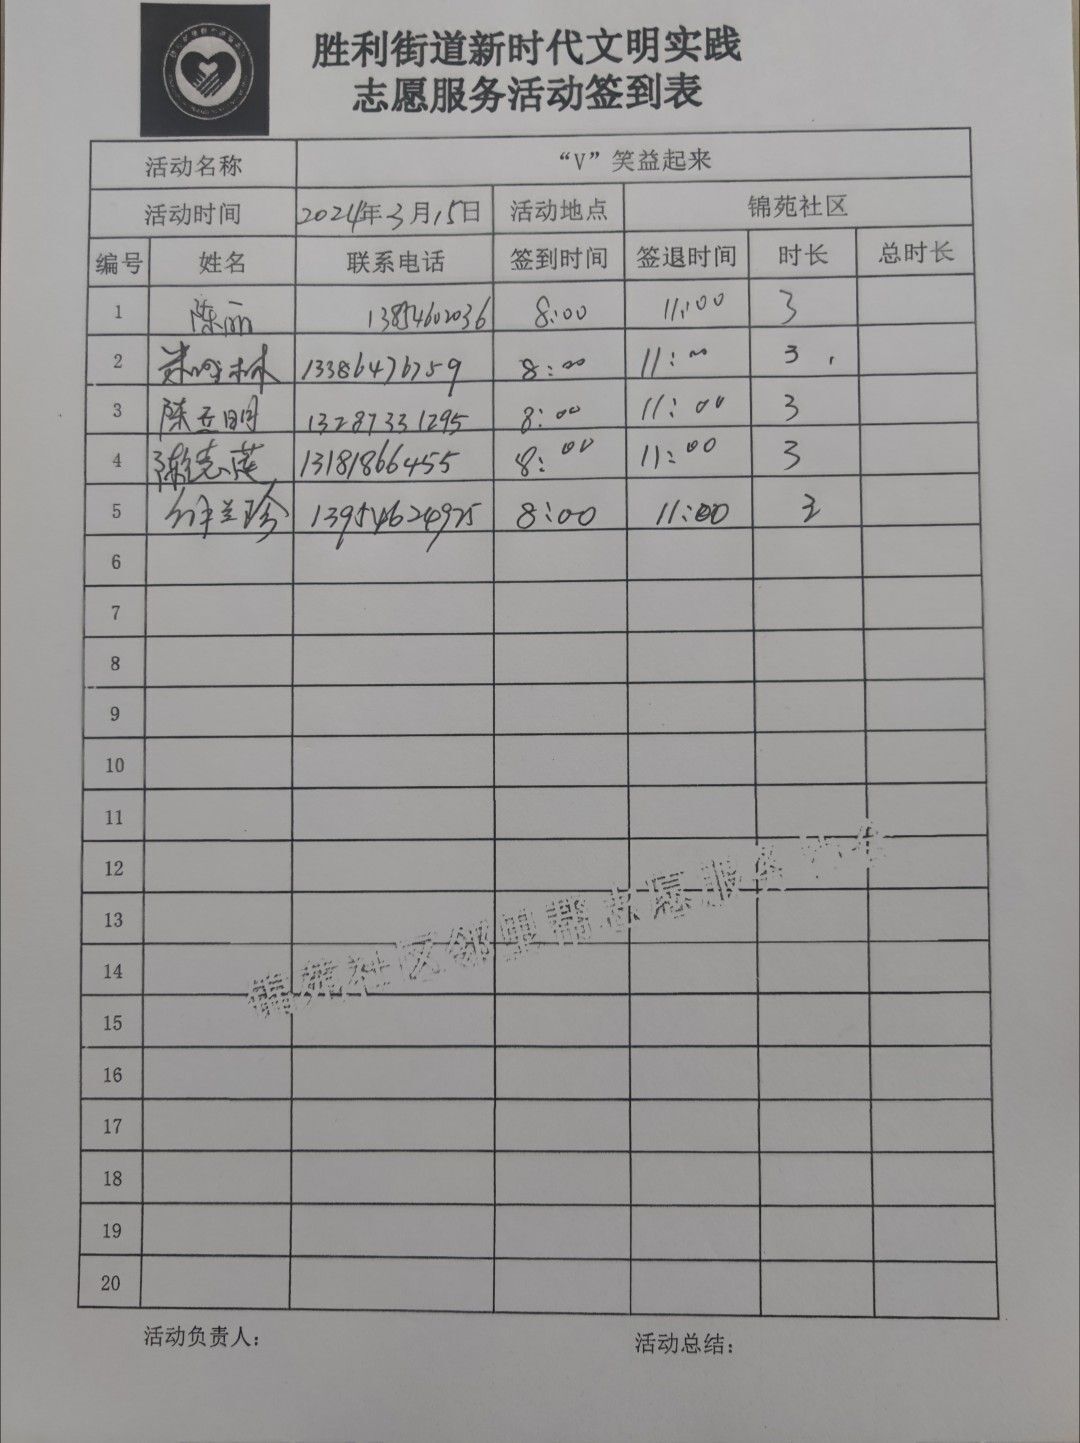 胜利街道新时代文明实践
志愿服务活动签到表
活动名称 “V”笑益起来
活动时间 2024年3月15日 活动地点 锦苑社区
编号 姓名 联系电话 签到时间 签退时间 时长 总时长
1 陈丽 13854602036 8:00 11:00 3
2 林 13386476759 8:00 11:00 3
3 陈 明 13287331295 8:00 11:00 3
4 陈 13181866455 8:00 11:00 3
5 兰珍 13954624925 8:00 11:00 3
6
7
8
9
10
11
12
13
14
15
16
17
18
19
20
锦苑社区邻里帮志愿服务
活动负责人： 活动总结：